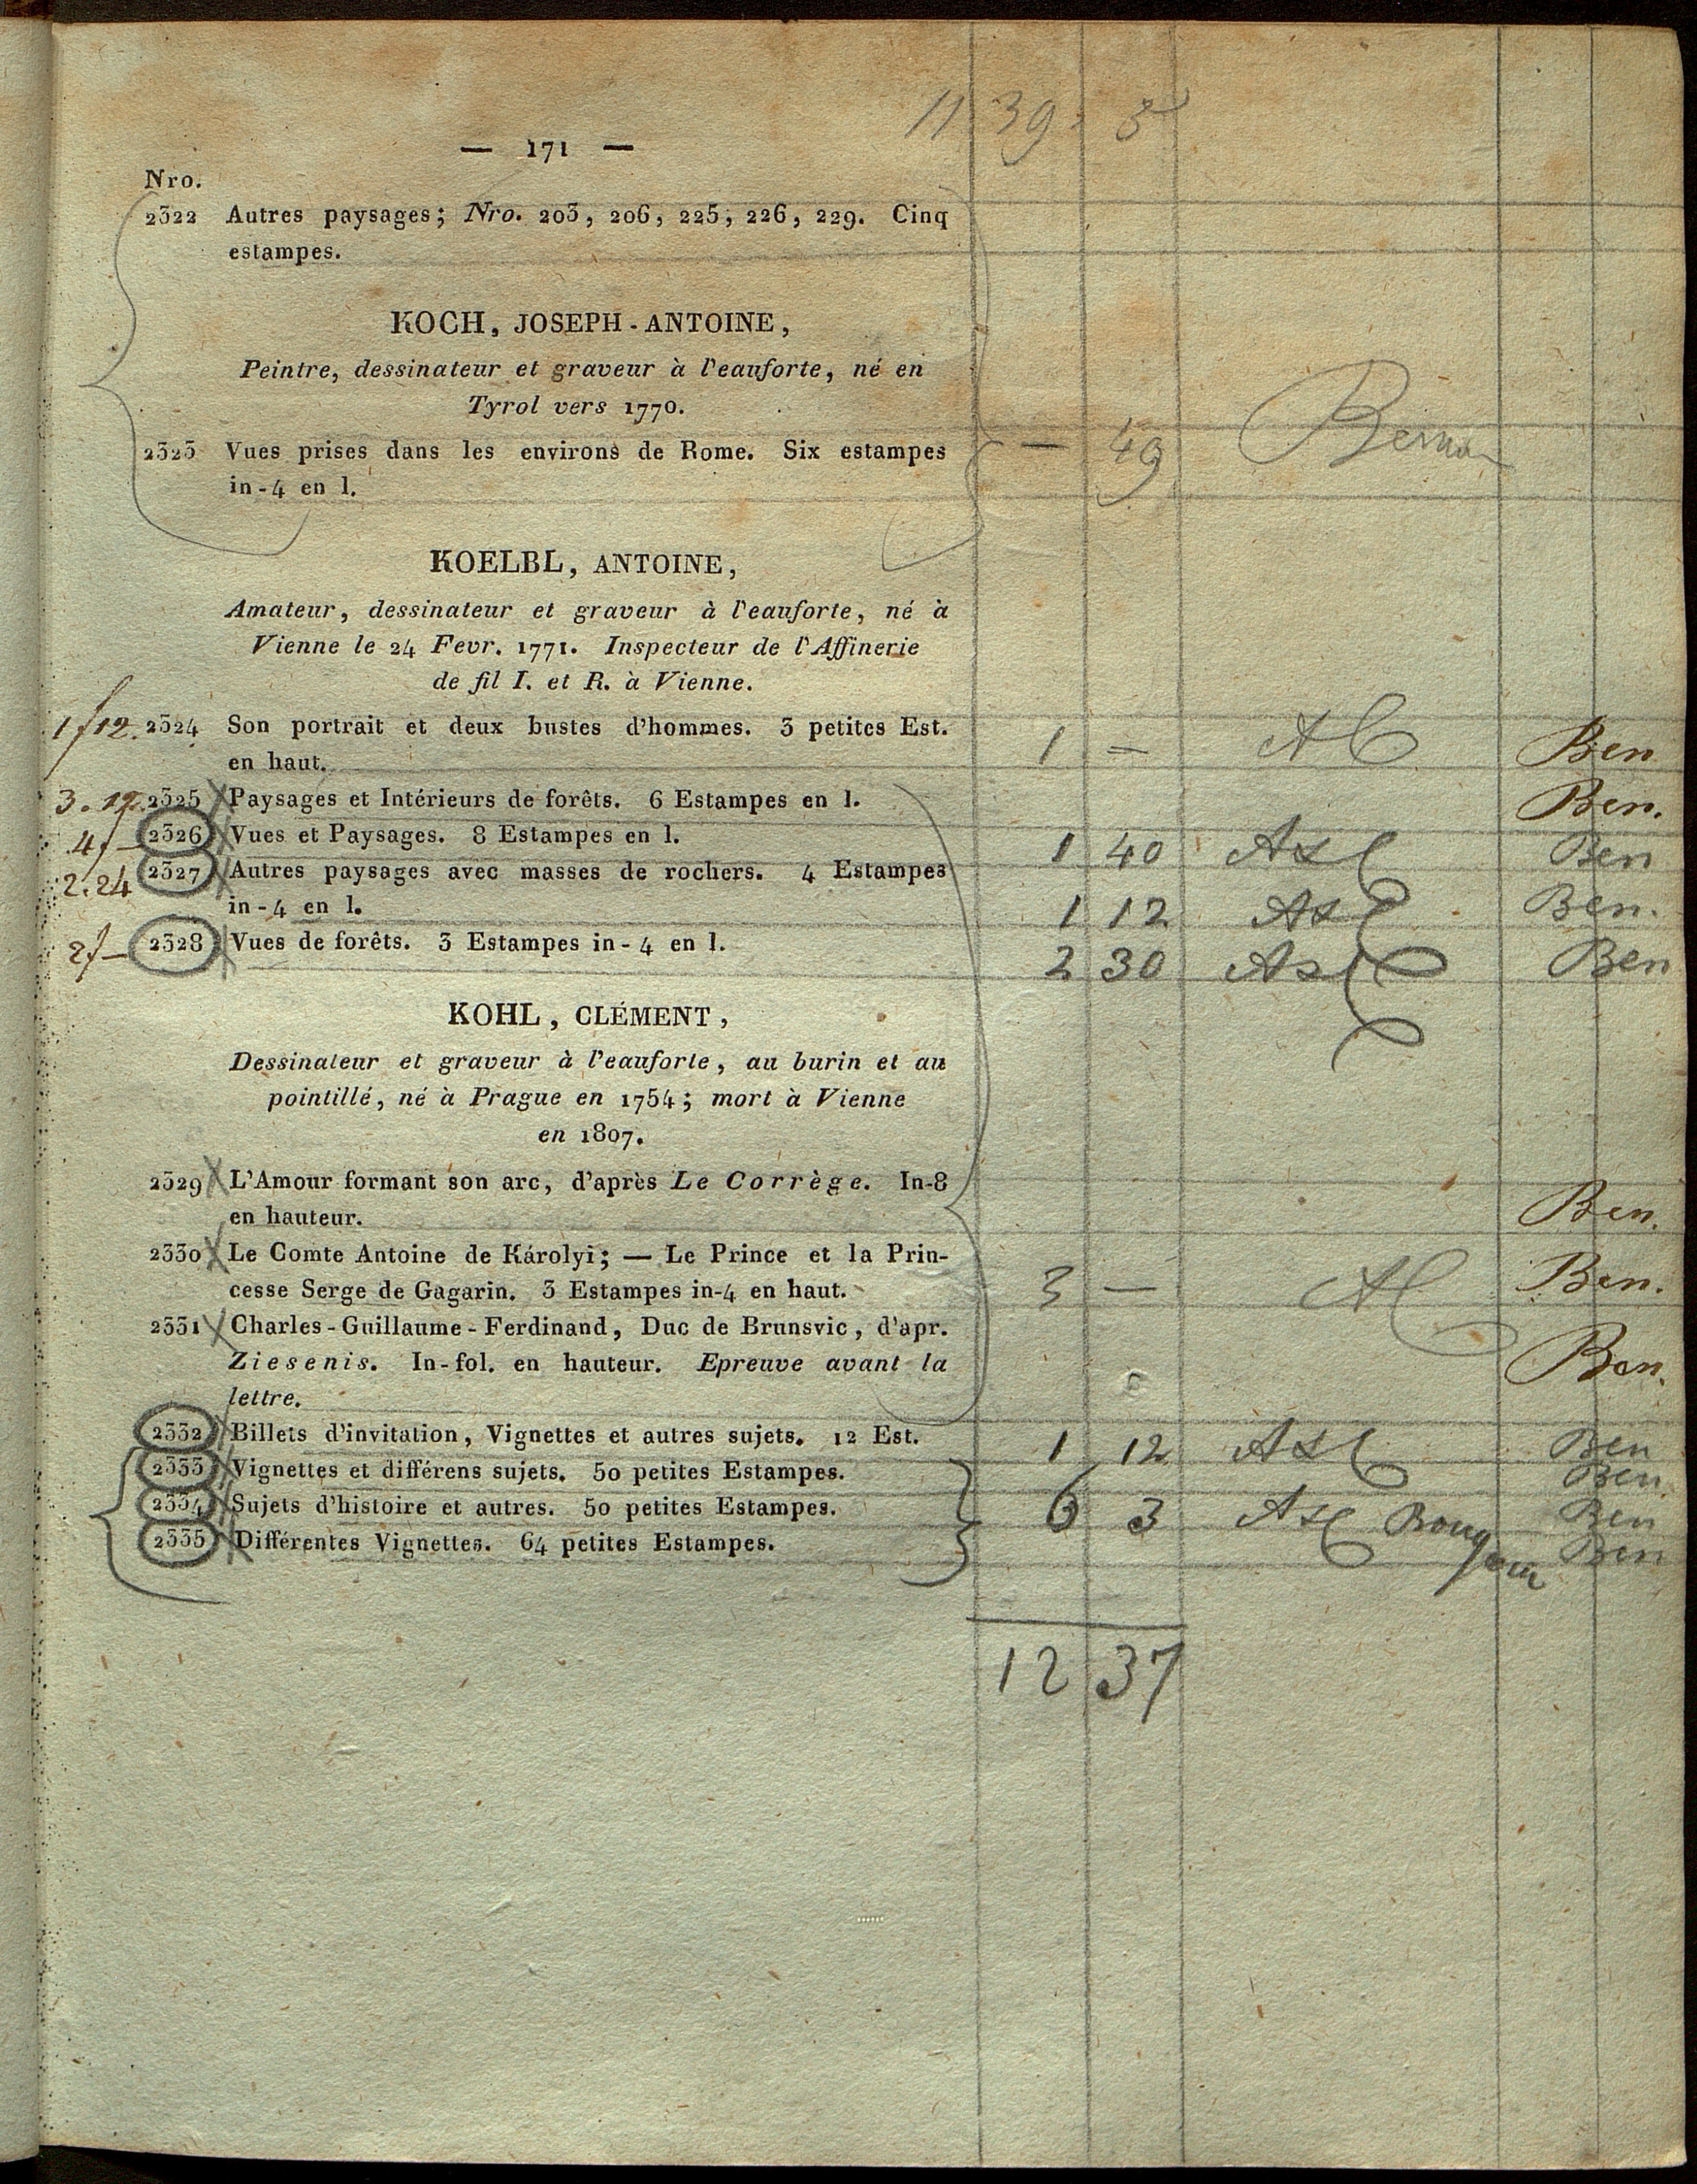 11 39 3
— 171 —
Nro.
2322 Autres paysages; Nro. 203, 206, 225, 226, 229. Cinq
estampes.
KOCH, JOSEPH-ANTOINE,
Peintre, dessinateur et graveur à l'eauforte, né en
Tyrol vers 1770.
2323 Vues prises dans les environs de Rome. Six estampes — 49
in-4 en l.
KOELBL, ANTOINE,
Amateur, dessinateur et graveur à l'eauforte, né à
Vienne le 24 Fevr. 1771. Inspecteur de l'Affinerie
de fil I. et R. à Vienne.
1f12. 2324 Son portrait et deux bustes d'hommes. 3 petites Est. 1 — Ben
en haut.
3. 2325 Paysages et Intérieurs de forêts. 6 Estampes en l. Ben.
4f— 2326 Vues et Paysages. 8 Estampes en l. 1 40 Ben
2.24 2327 Autres paysages avec masses de rochers. 4 Estampes
in-4 en l. 1 12 Ben.
2f— 2328 Vues de forêts. 3 Estampes in-4 en l. 2 30 Ben
KOHL, CLÉMENT,
Dessinateur et graveur à l'eauforte, au burin et au
pointillé, né à Prague en 1754; mort à Vienne
en 1807.
2329 L'Amour formant son arc, d'après Le Corrège. In-8
en hauteur. Ben.
2330 Le Comte Antoine de Károlyi; — Le Prince et la Prin-
cesse Serge de Gagarin. 3 Estampes in-4 en haut. 3 — Ben.
2331 Charles-Guillaume-Ferdinand, Duc de Brunsvic, d'apr.
Ziesenis. In-fol. en hauteur. Epreuve avant la Ben.
lettre.
2332 Billets d'invitation, Vignettes et autres sujets. 12 Est. 1 12 Ben
2333 Vignettes et différens sujets. 50 petites Estampes. Ben
2334 Sujets d'histoire et autres. 50 petites Estampes. 6 3 Ben
2335 Différentes Vignettes. 64 petites Estampes. Ben
12 37